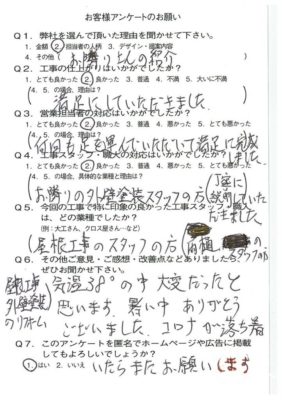 お客様アンケートのお願い
Q1. 弊社を選んで頂いた理由を聞かせて下さい。
1. 金額 2. 担当者の人柄 3. デザイン・提案内容
4. その他（お隣りさんの紹介）
Q2. 工事の仕上がりはいかがでしたか？
1. とても良かった 2. 良かった 3. 普通 4. 不満 5. 大いに不満
（4. 5. の場合、理由は？
満足にしていただきました。）
Q3. 営業担当者の対応はいかがでしたか？
1. とても良かった 2. 良かった 3. 普通 4. 悪かった 5. とても悪かった
（4. 5. の場合、理由は？
何回も足を運んでいただいて満足に完成
しました。）
Q4. 工事スタッフ・職人の対応はいかがでしたか？
1. とても良かった 2. 良かった 3. 普通 4. 悪かった 5. とても悪かった
（4. 5. の場合、具体的な業種と理由は？
お隣りの外壁塗装スタッフの方（丁寧に
説明していた
だきました。
Q5. 今回の工事で特に印象の良かった工事スタッフ・職人
は、どの業種でしたか？
（例：大工さん、クロス屋さん…など）
（屋根工事のスタッフの方）
スタッフの方
Q6. その他ご意見・ご感想・改善点などありましたら、
ぜひお聞かせ下さい。
屋根工事
外壁塗装
のリフォーム
気温38°の中 大変だったと
思います。暑い中 ありがとう
ございました。コロナが落ち着
Q7. このアンケートを匿名でホームページや広告に掲載
してもよろしいでしょうか？
1. はい 2. いいえ いたらまたお願いします